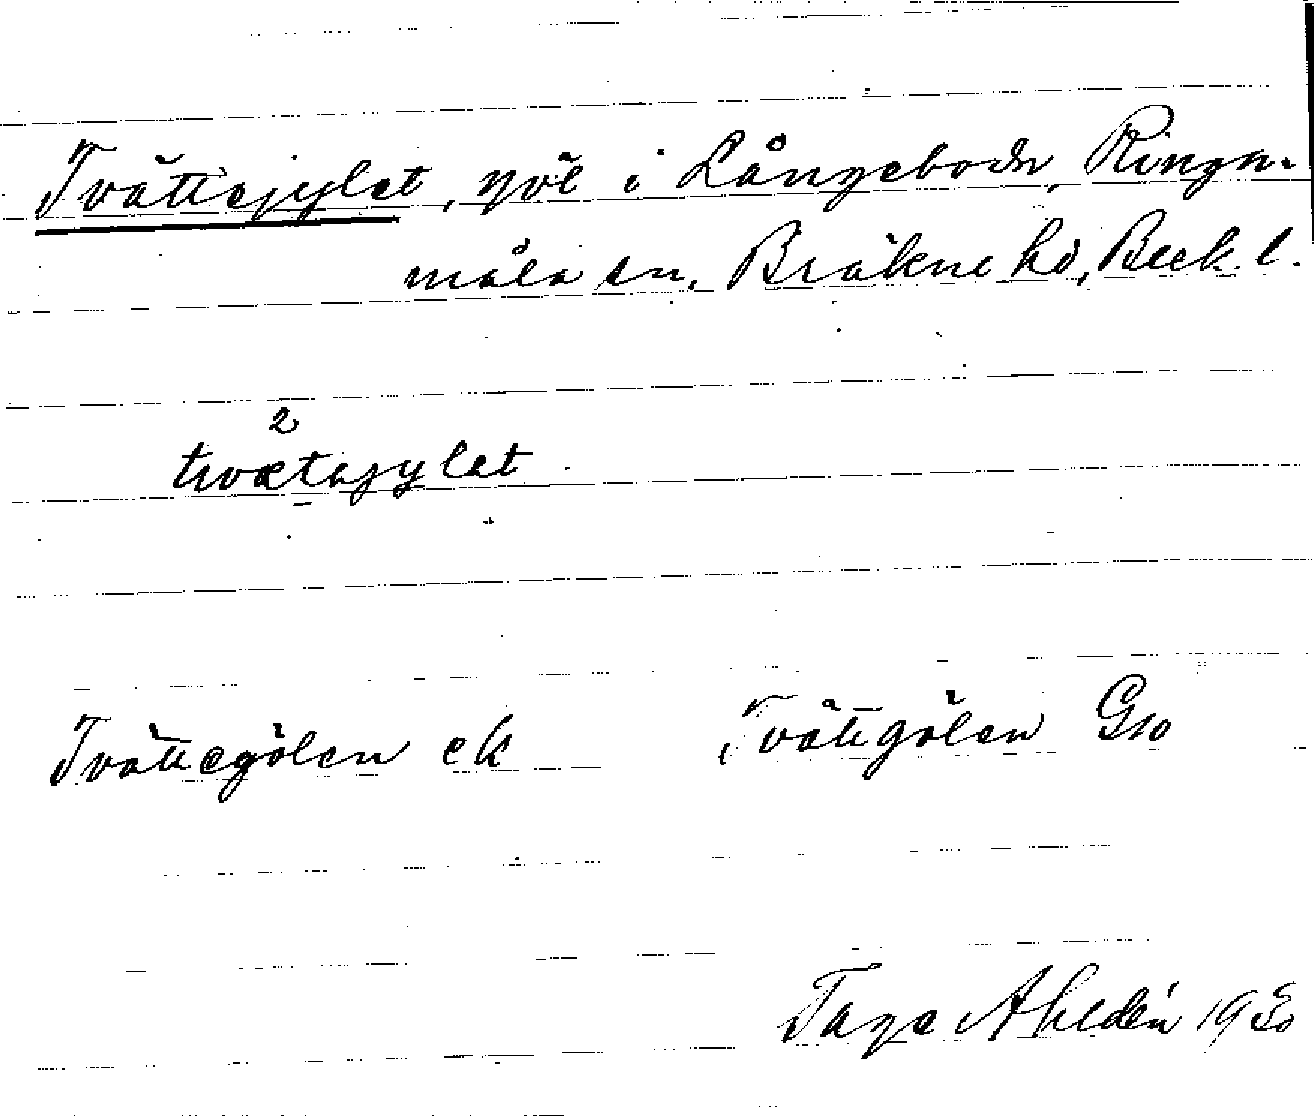 Tvättejylet, göl i Långeboda, Ringa-
måla sn, Bräkne hd, Blek. l.
2
tvætajylat
Tvättegölen ek Tvättgölen Gso
Tage Ahldén 1930